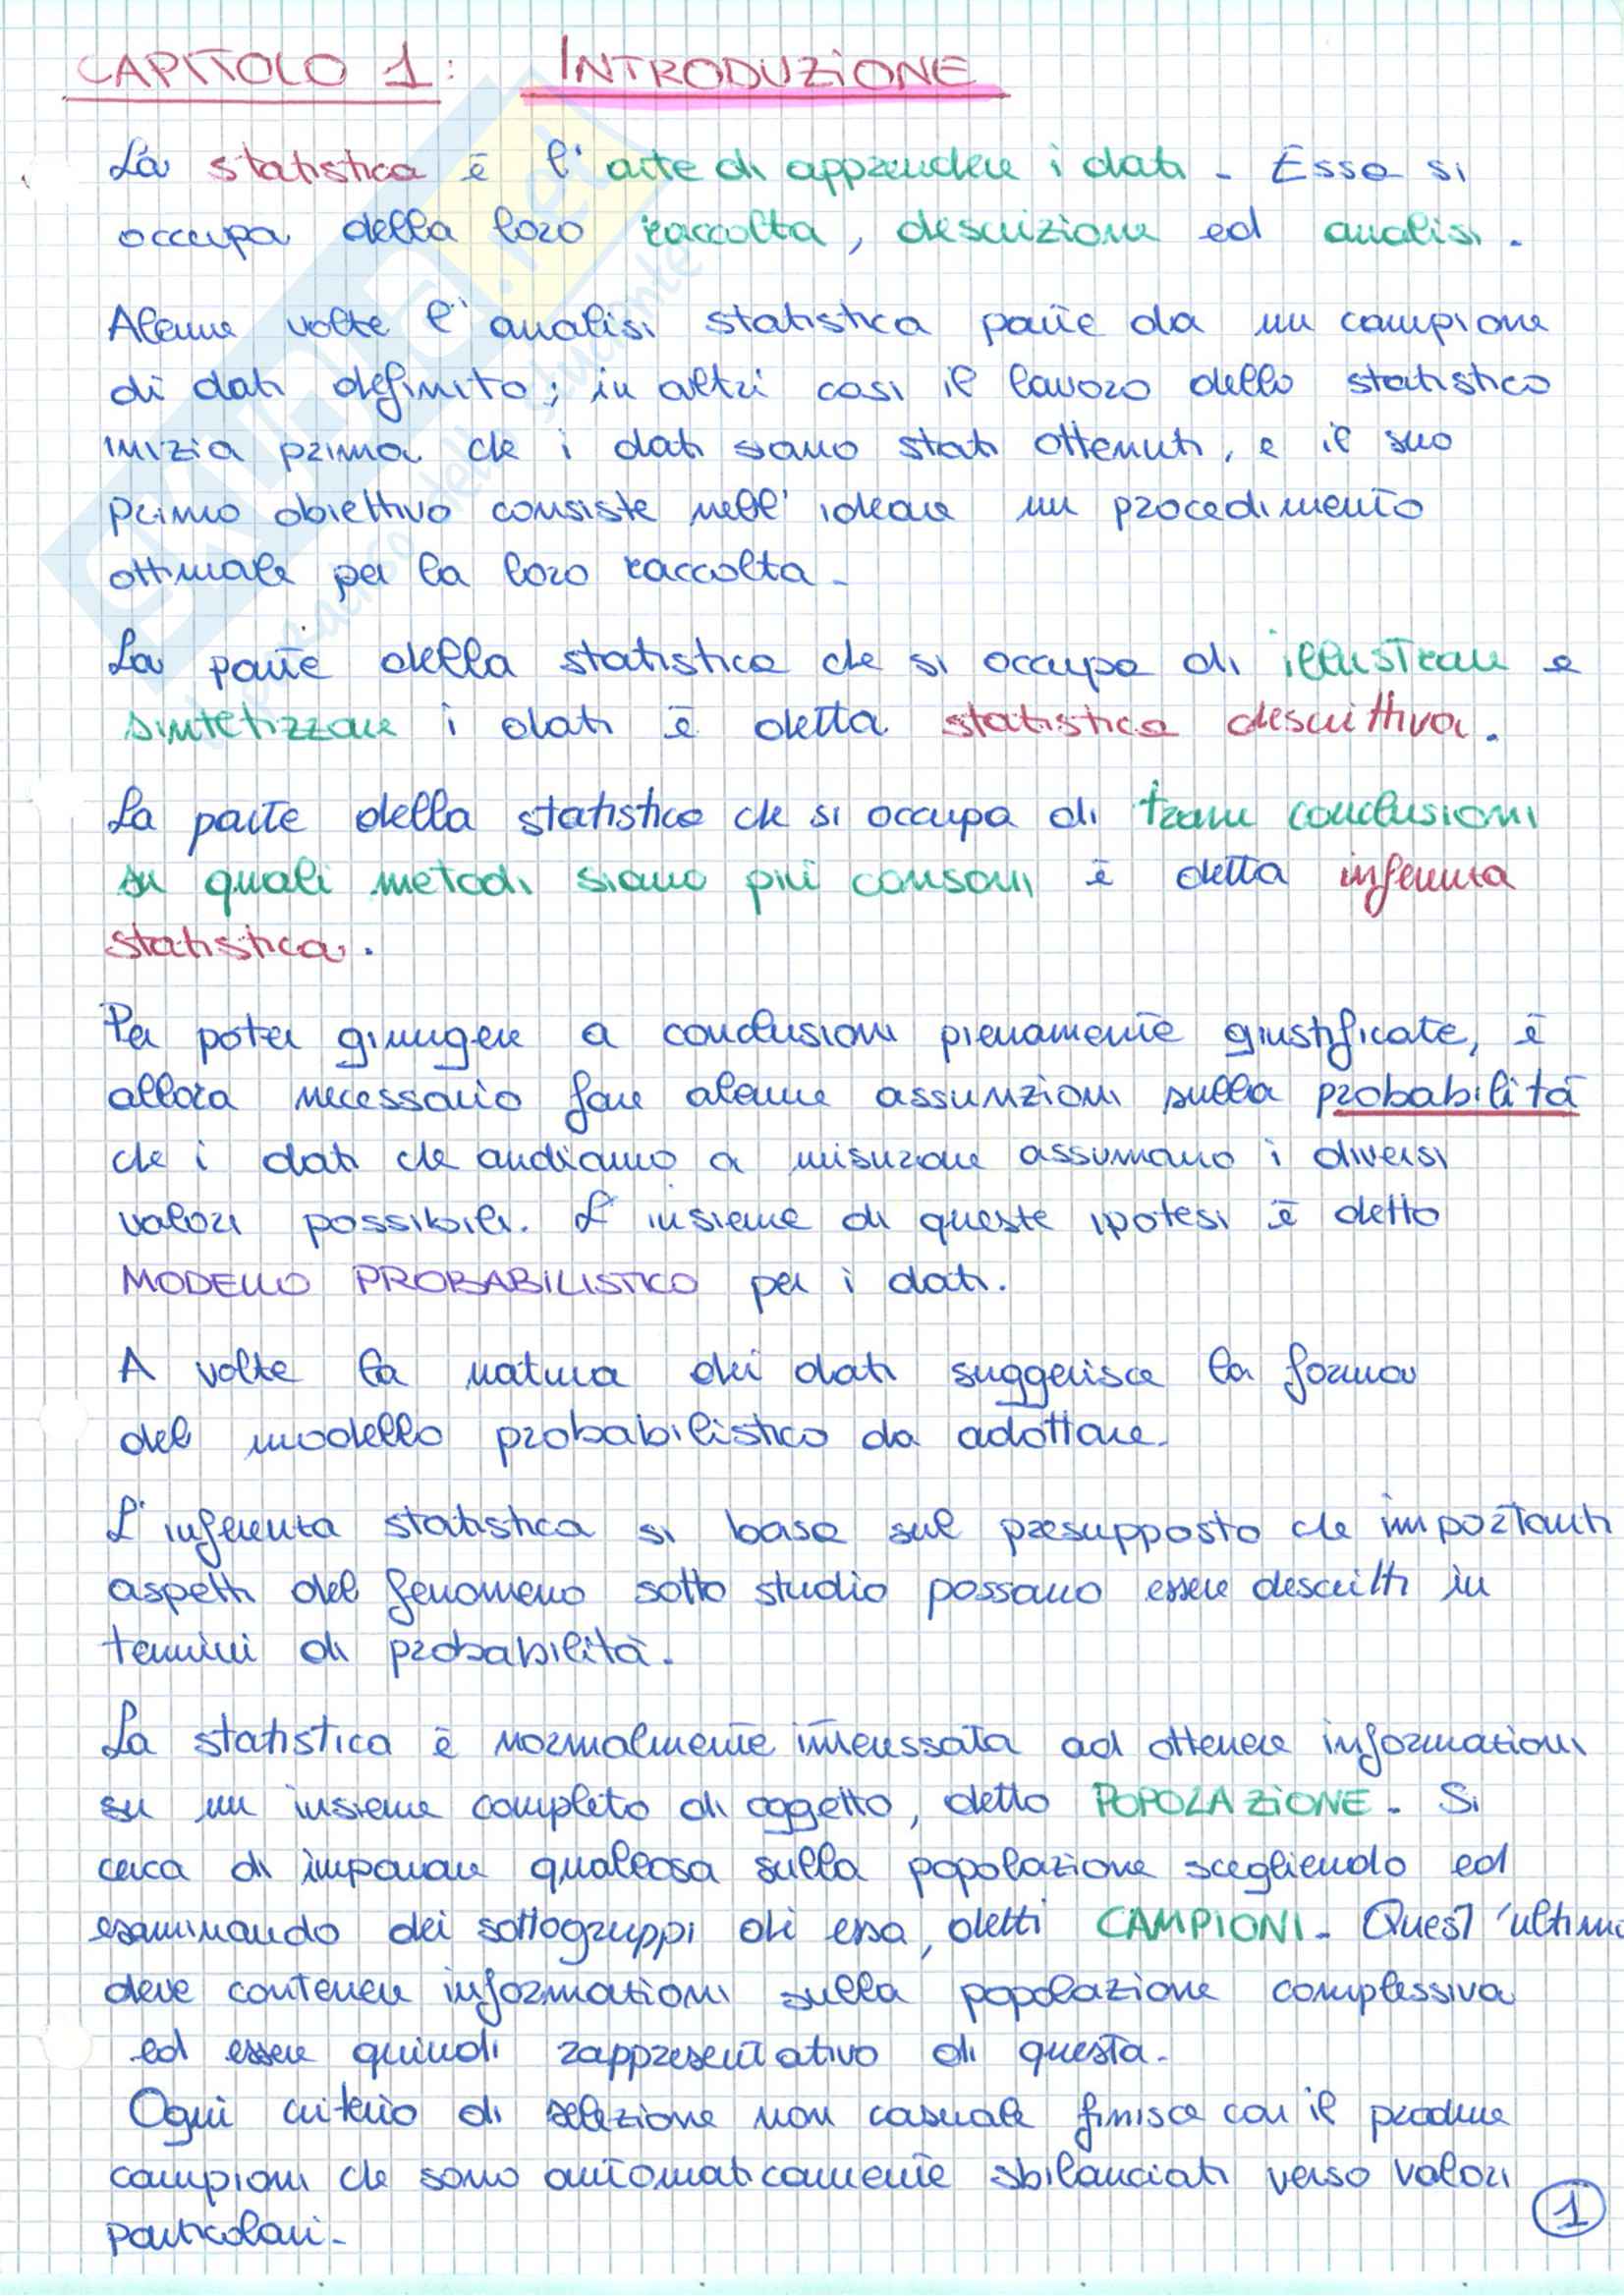 CAPITOLO 1: INTRODUZIONE
La statistica è l'arte di apprendere i dati. Essa si
occupa della loro raccolta, descrizione ed analisi.
Alcune volte l'analisi statistica parte da un campione
di dati definito; in altri casi il lavoro dello statistico
inizia prima che i dati siano stati ottenuti, e il suo
primo obiettivo consiste nell'ideare un procedimento
ottimale per la loro raccolta.
La parte della statistica che si occupa di illustrare e
sintetizzare i dati è detta statistica descrittiva.
La parte della statistica che si occupa di trarre conclusioni
su quali metodi siano più consoni è detta inferenza
statistica.
Per poter giungere a conclusioni pienamente giustificate, è
allora necessario fare alcune assunzioni sulla probabilità
che i dati che andiamo a misurare assumano i diversi
valori possibili. L'insieme di queste ipotesi è detto
MODELLO PROBABILISTICO per i dati.
A volte la natura dei dati suggerisce la forma
del modello probabilistico da adottare.
L'inferenza statistica si basa sul presupposto che importanti
aspetti del fenomeno sotto studio possano essere descritti in
termini di probabilità.
La statistica è normalmente interessata ad ottenere informazioni
su un insieme completo di oggetto, detto POPOLAZIONE. Si
cerca di imparare qualcosa sulla popolazione scegliendo ed
esaminando dei sottogruppi di essa, detti CAMPIONI. Quest'ultimo
deve contenere informazioni sulla popolazione complessiva
ed essere quindi rappresentativo di questa.
Ogni criterio di selezione non casuale finisce con il produrre
campioni che sono automaticamente sbilanciati verso valori
particolari.
1